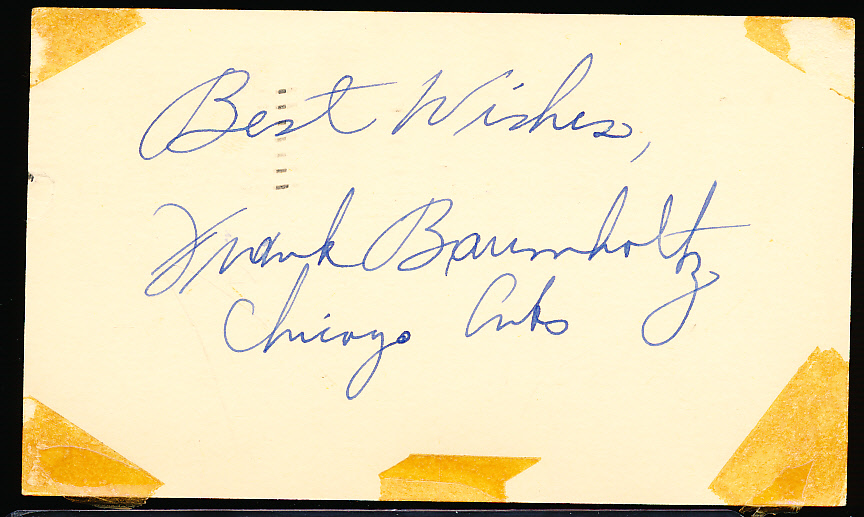 Best Wishes,
Frank Baumholtz
Chicago Cubs